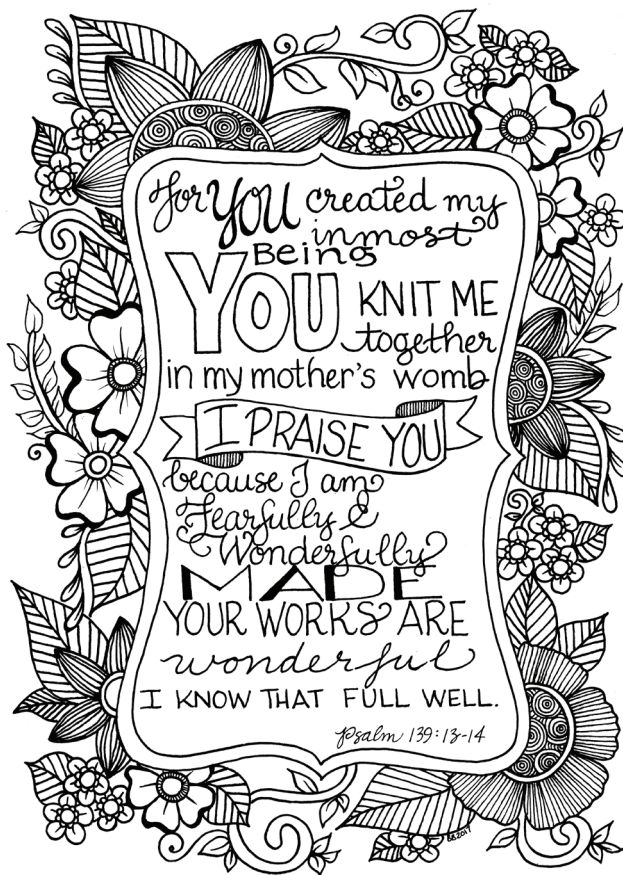 for YOU created my
inmost
Being
YOU KNIT ME
together
in my mother's womb
I PRAISE YOU
because I am
Fearfully &
Wonderfully
MADE
YOUR WORKS ARE
wonderful
I KNOW THAT FULL WELL.
Psalm 139:13-14
BB2017